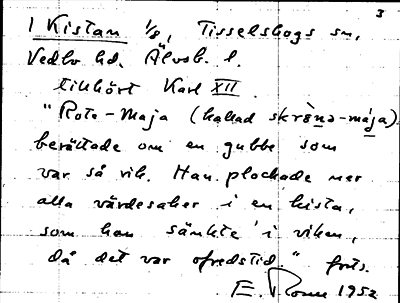 3
1 Kistan 1/8, Tisselskogs sn,
Vedbo hd. Älvsb. l.
tillhört Karl XII
"Rote-Maja (kallad skrönə-mája)
berättade om en gubbe som
var så rik. Han plockade ner
alla värdesaker i en kista,
som han sänkte i viken,
då det var ofredstid." forts.
E. 1952